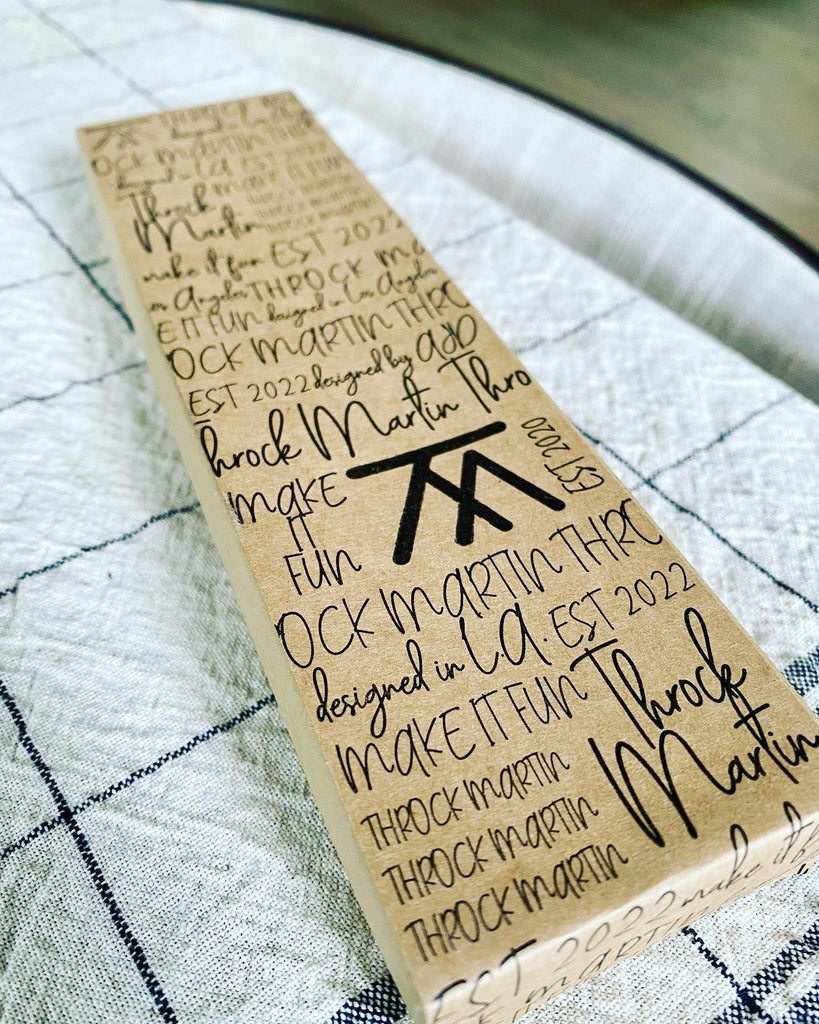 OCK MARTIN THR
L.A. EST 2022
Throck make it fun
Martin THROCK MARTIN
THROCK MARTIN
make it fun EST 2022
os Angeles THROCK MA
E IT FUN designed in Los Angeles
OCK MARTIN THRO
EST 2022 designed by
hrock Martin Thro
MAKE
IT
FUN
EST 2020
OCK MARTIN THRO
designed in L.A. EST 2022
MAKE IT FUN Throck
Martin
THROCK MARTIN
THROCK MARTIN
THROCK MARTIN
EST 2022 make it
MARTIN